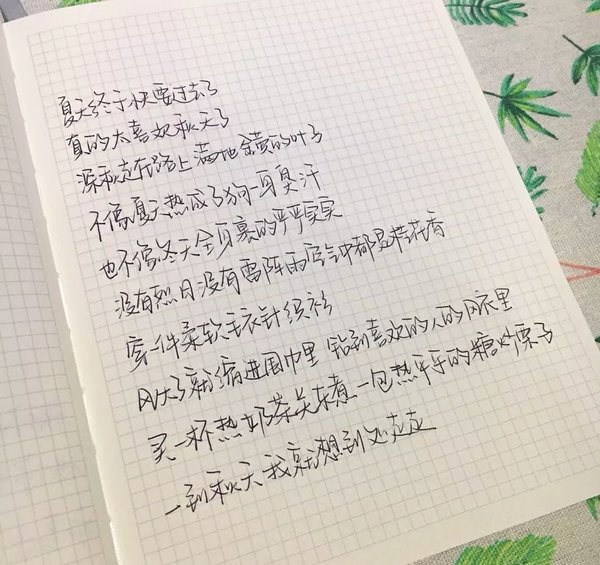 夏天终于快要过去了
真的太喜欢秋天了
深秋走在路上满地金黄的叶子
不像夏天热成了狗一身臭汗
也不像冬天全身裹的严严实实
没有烈日没有雷阵雨空气中都是桂花香
穿一件柔软毛衣针织衫
风大了就缩进围巾里 钻到喜欢的人的风衣里
买一杯热奶茶关东煮一包热乎乎的糖炒栗子
一到秋天我就想到处走走